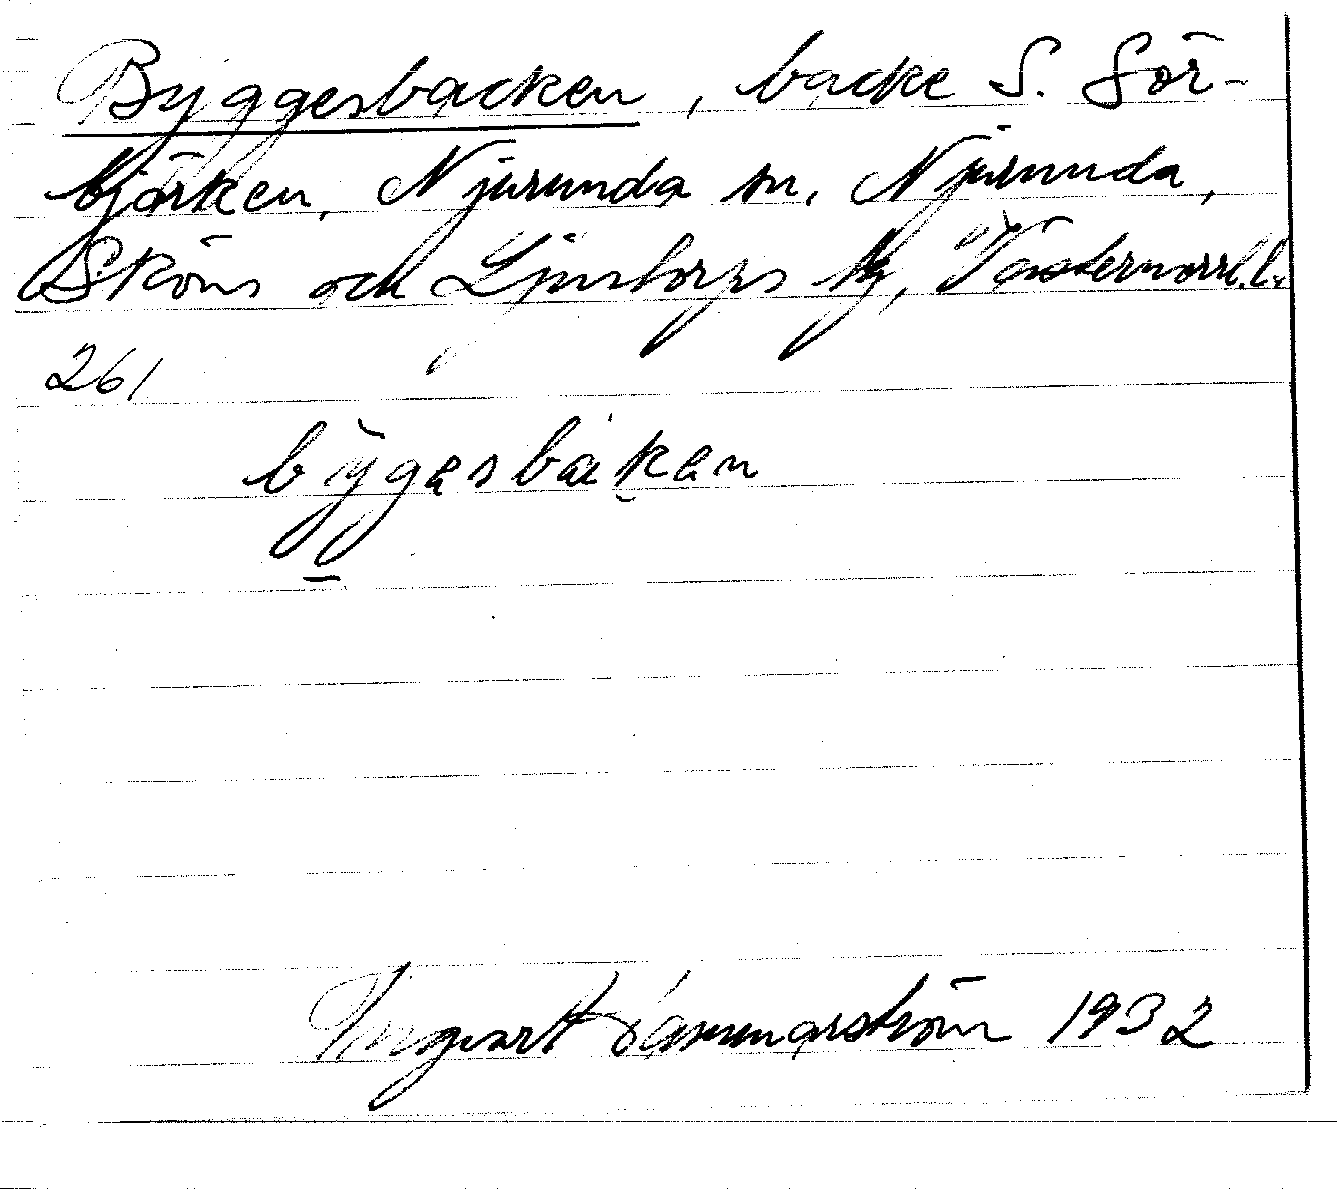 Byggesbacken, backe S. Sör-
björken, Njurunda sn, Njurunda,
Sköns och Ljustorps tg, Västernorrl. l.
261
bỳgesbaken
Ingvart Hammarström 1932